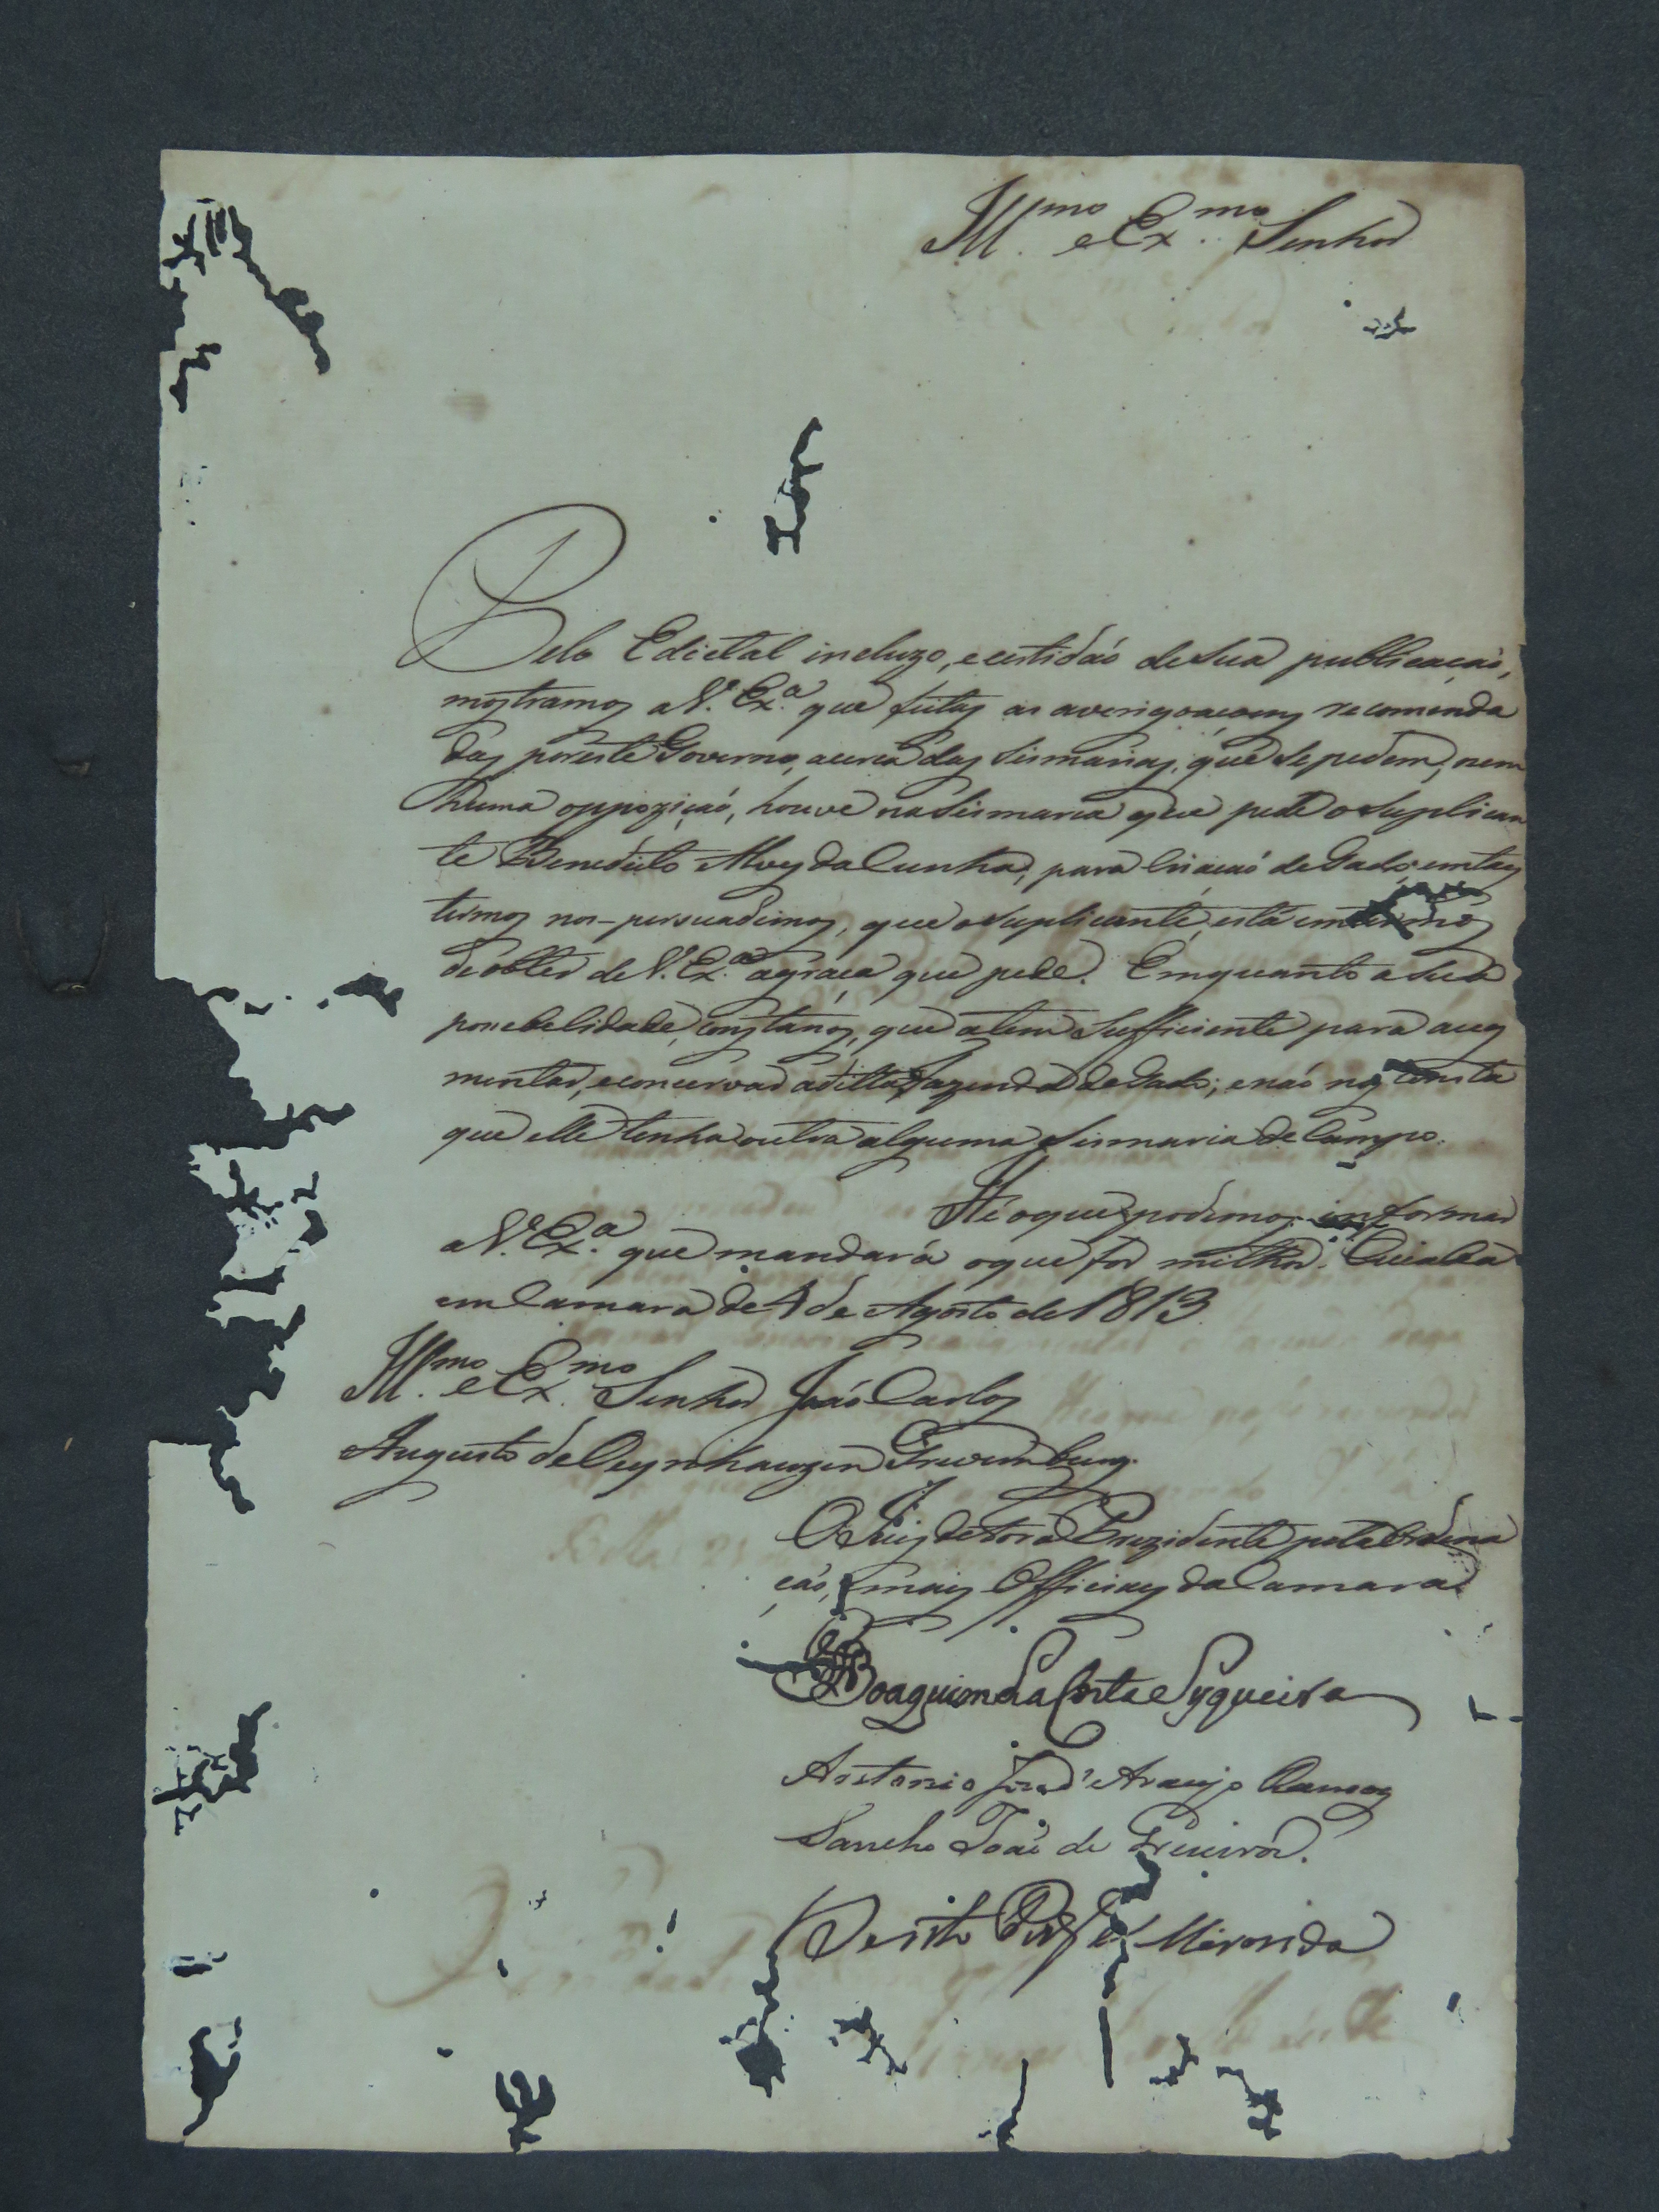 Ill.mo e Ex.mo Senhor
Pelo Edictal incluzo, e certidaõ de sua publicaçaõ,
mostramos a V. Ex.a que feitas as averigoaçoens recomenda
das por este Governo, acerca das Sismarias, que se pedem, nem
huma oppoziçaõ, houve na Sismaria que pede o Suplican
te Benedicto Alves da Cunha, para Criaçaõ de Gado; em taes
termos nos-persuadimos, que o Suplicante, está em termos
de obter de V. Ex.a a graça que pede. Emquanto a sua
pocebelidade, consta nos, que a tem Sufficiente para aug
mentar, e concervar a ditta Fazenda de Gado; e naõ nos consta
que elle tenha outra alguma Sismaria de Campo.
He o que podemos informar
a V. Ex.a que mandará o que for milhor. Cuiabá
em Camara de 4 de Agosto de 1813.
Ill.mo e Ex.mo Senhor Joaõ Carlos
Augusto de Oeynhauzen Grevemburg.
O Juiz de Fora Prezidente pela Ordena
çaõ, e mais Officiaes da Camara
Joaquim da Costa e Syqueira
Antonio José d'Araujo Ramos
Sancho Joaõ de
Bento Pires Miranda